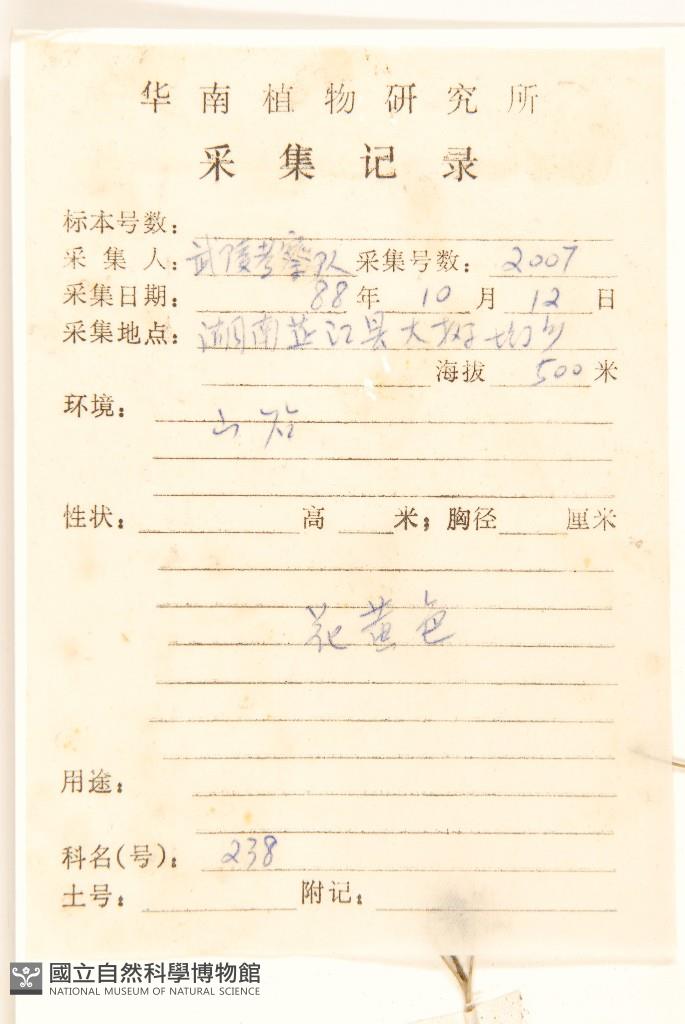 华南植物研究所
采集记录
标本号数:
采集人: 武陵考察队 采集号数: 2007
采集日期: 88年10月12日
采集地点: 湖南芷江县大树坳乡
海拔 500米
环境:
山
性状: 高 米; 胸径 厘米
花黄色
用途:
科名(号): 238
土号: 附记:
國立自然科學博物館
NATIONAL MUSEUM OF NATURAL SCIENCE